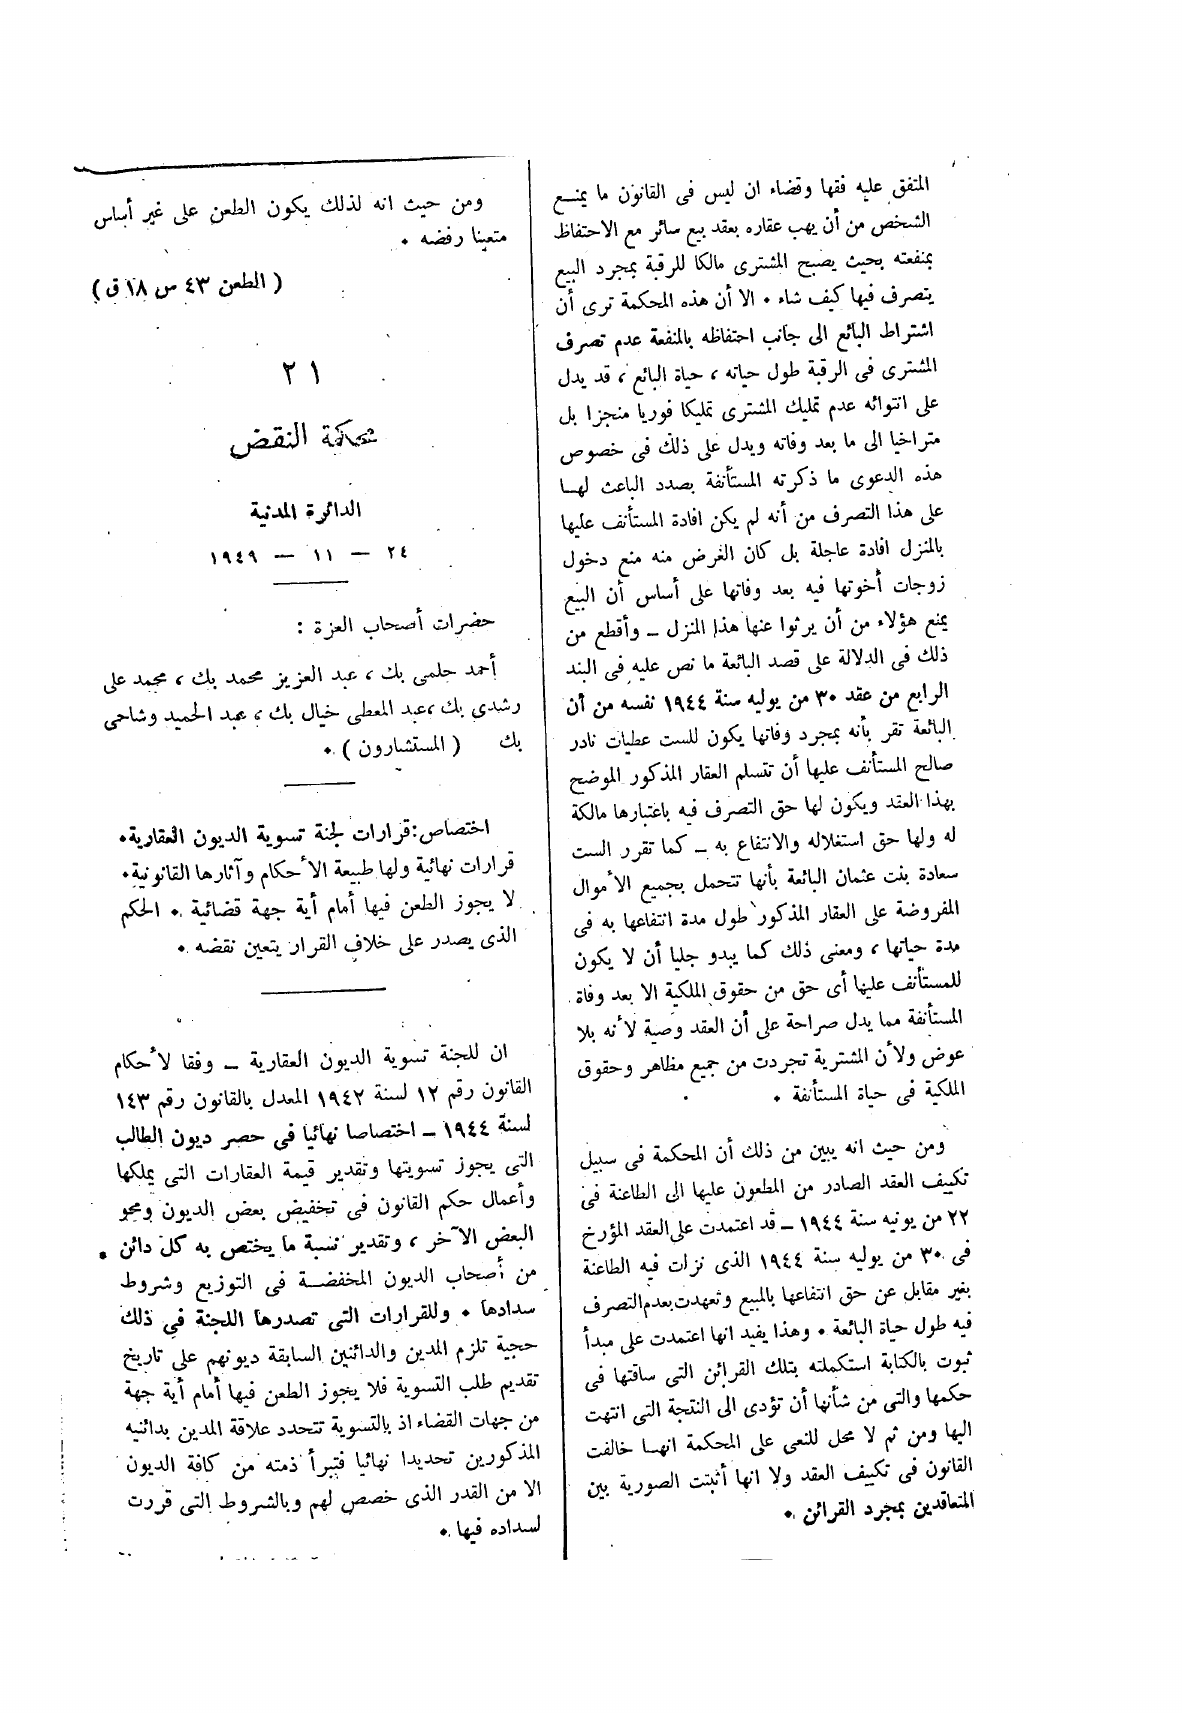 المتفق عليه فقها وقضاء ان ليس فى القانون ما يمنع
الشخص من أن يهب عقاره بعقد بيع سائر مع الاحتفاظ
بمنفعته بحيث يصبح المشترى مالكا للرقبة بمجرد البيع
يتصرف فيها كيف شاء • الا أن هذه المحكمة ترى أن
اشتراط البائع الى جانب احتفاظه بالمنفعة عدم تصرف
المشترى فى الرقبة طول حياته ، حياة البائع ، قد يدل
على انتوائه عدم تمليك المشترى تمليكا فوريا منجزا بل
متراخيا الى ما بعد وفاته ويدل على ذلك فى خصوص
هذه الدعوى ما ذكرته المستأنفة بصدد الباعث لها
على هذا التصرف من أنه لم يكن افادة المستأنف عليها
بالمنزل افادة عاجلة بل كان الغرض منه منع دخول
زوجات أخوتها فيه بعد وفاتها على أساس أن البيع
يمنع هؤلاء من أن يرثوا عنها هذا المنزل – وأقطع من
ذلك فى الدلالة على قصد البائعة ما نص عليه فى البند
الرابع من عقد ٣٠ من يوليه سنة ١٩٤٤ نفسه من أن
البائعة تقر بأنه بمجرد وفاتها يكون للست عطيات نادر
صالح المستأنف عليها أن تتسلم العقار المذكور الموضح
بهذا العقد ويكون لها حق التصرف فيه باعتبارها مالكة
له ولها حق استغلاله والانتفاع به – كما تقرر الست
سعادة بنت عثمان البائعة بأنها تتحمل بجميع الأموال
المفروضة على العقار المذكور طول مدة انتفاعها به فى
مدة حياتها ، ومعنى ذلك كما يبدو جليا أن لا يكون
للمستأنف عليها أى حق من حقوق الملكية الا بعد وفاة
المستأنفة مما يدل صراحة على أن العقد وصية لأنه بلا
عوض ولأن المشترية تجردت من جميع مظاهر وحقوق
الملكية فى حياة المستأنفة •
ومن حيث انه يبين من ذلك أن المحكمة فى سبيل
تكييف العقد الصادر من المطعون عليها الى الطاعنة فى
٢٢ من يونيه سنة ١٩٤٤ – قد اعتمدت على العقد المؤرخ
فى ٣٠ من يوليه سنة ١٩٤٤ الذى نزلت فيه الطاعنة
بغير مقابل عن حق انتفاعها بالمبيع وتعهدت بعدم التصرف
فيه طول حياة البائعة • وهذا يفيد انها اعتمدت على مبدأ
ثبوت بالكتابة استكملته بتلك القرائن التى ساقتها فى
حكمها والتى من شأنها أن تؤدى الى النتجة التى انتهت
اليها ومن ثم لا محل للنعى على المحكمة انها خالفت
القانون فى تكييف العقد ولا انها أثبتت الصورية بين
المتعاقدين بمجرد القرائن •
ومن حيث انه لذلك يكون الطعن على غير أساس
متعينا رفضه •
( الطعن ٤٣ س ١٨ ق )
٢١
محكمة النقض
الدائرة المدنية
٢٤ – ١١ – ١٩٤٩
حضرات أصحاب العزة :
أحمد حلمى بك ، عبد العزيز محمد بك ، محمد على
رشدى بك ، عبد المعطى خيال بك ، عبد الحميد وشاحى
بك ( المستشارون ) •
اختصاص : قرارات لجنة تسوية الديون العقارية •
قرارات نهائية ولها طبيعة الأحكام وآثارها القانونية •
لا يجوز الطعن فيها أمام أية جهة قضائية • الحكم
الذى يصدر على خلاف القرار يتعين نقضه •
ان للجنة تسوية الديون العقارية – وفقا لأحكام
القانون رقم ١٢ لسنة ١٩٤٢ المعدل بالقانون رقم ١٤٣
لسنة ١٩٤٤ – اختصاصا نهائيا فى حصر ديون الطالب
التى يجوز تسويتها وتقدير قيمة العقارات التى يملكها
وأعمال حكم القانون فى تخفيض بعض الديون ومحو
البعض الآخر ، وتقدير نسبة ما يختص به كل دائن •
من أصحاب الديون المخفضة فى التوزيع وشروط
سدادها • وللقرارات التى تصدرها اللجنة فى ذلك
حجية تلزم المدين والدائنين السابقة ديونهم على تاريخ
تقديم طلب التسوية فلا يجوز الطعن فيها أمام أية جهة
من جهات القضاء اذ بالتسوية تتحدد علاقة المدين بدائنيه
المذكورين تحديدا نهائيا فتبرأ ذمته من كافة الديون
الا من القدر الذى خصص لهم وبالشروط التى قررت
لسداده فيها •